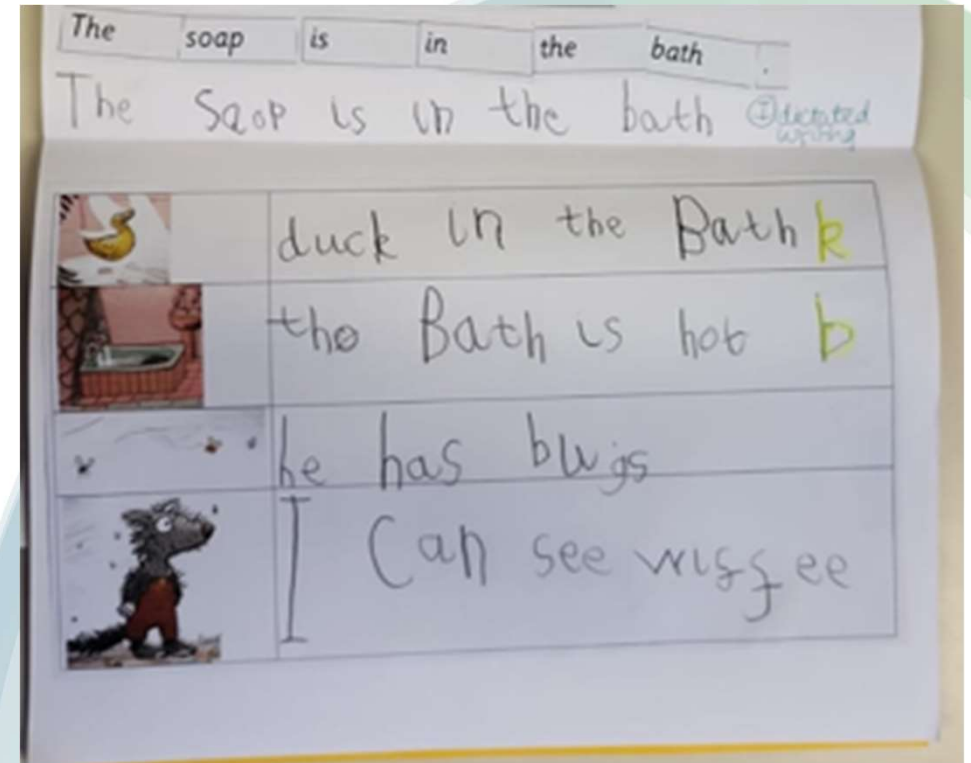 The soap is in the bath .
The Saop is in the bath Ⓘ dictated writing
duck in the Bath k
the Bath is hot b
he has bugs
I Can see wiffee